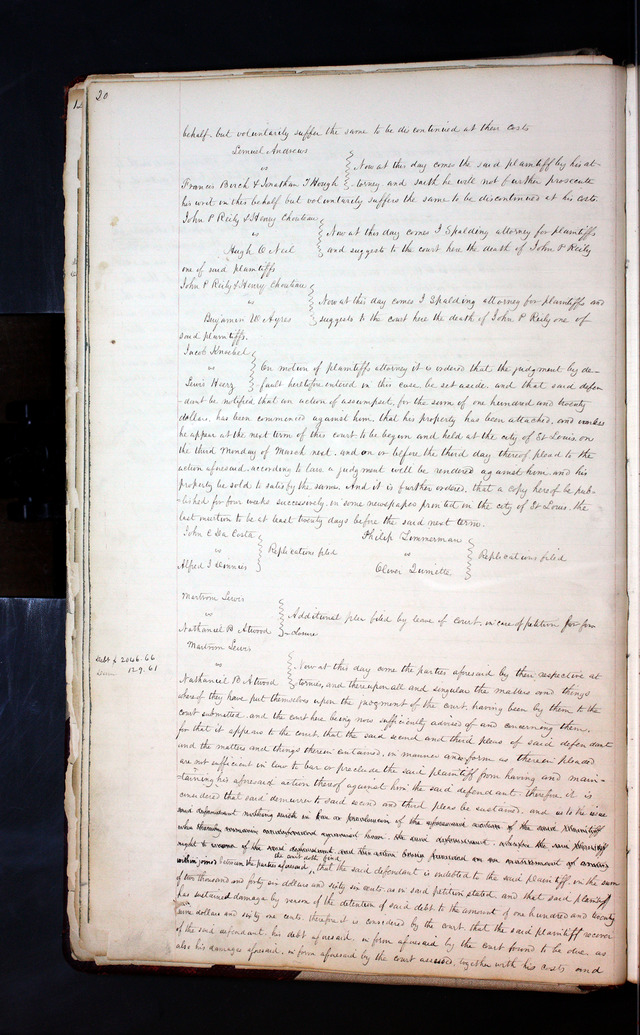 20
behalf, but voluntarily suffer the same to be discontinued at their costs
Lemuel Andrews
vs
Francis Birch & Jonathan T Hough
Now at this day comes the said plaintiff by his at-
-torney and saith he will not further prosecute
his writ in this behalf but voluntarily suffers the same to be discontinued at his costs.
John P Reily & Henry Chouteau
vs
Hugh O Neil
Now at this day comes J Spalding attorney for plaintiffs
and suggests to the court here the death of John P Reily
one of said plaintiffs
John P Reily & Henry Chouteau
vs
Benjamin W Ayres
Now at this day comes J Spalding attorney for plaintiffs and
suggests to the court here the death of John P Reily one of
said plaintiffs.
Jacob
vs
Lewis
On motion of plaintiffs attorney it is ordered that the judgment by de-
-fault heretofore entered in this case be set aside and that said defen
-dant be notified that an action of assumpsit, for the sum of one hundred and twenty
dollars, has been commenced against him, that his property has been attached, and unless
he appear at the next term of this court to be begun and held at the city of St Louis on
the third Monday of March next, and on or before the third day thereof plead to the
action aforesaid, according to law a judgment will be rendered against him and his
property be sold to satisfy the same. And it is further ordered, that a copy hereof be pub-
-lished for four weeks successively, in some newspaper printed in the city of St Louis, the
last insertion to be at least twenty days before the said next term.
John C Da Costa
vs
Alfred J
Replications filed
Philip Zimmerman
vs
Oliver Quinette
Replications filed
Martrom Lewis
vs
Nathaniel B Atwood
Additional plea filed by leave of court, in case of petition for fore
-closure
Martrom Lewis
vs
Nathaniel B Atwood
Debt $ 2046.66
129.61
Now at this day come the parties aforesaid by their respective at
-tornies, and thereupon all and singular the matters and things
whereof they have put themselves upon the judgment of the court having been by them to the
court submitted, and the court here being now sufficiently advised of and concerning them,
for that it appears to the court that the said second and third pleas of said defendant
and the matters and things therein contained, in manner and form as therein pleaded
are not sufficient in law to bar or preclude the said plaintiff from having and main-
-taining his aforesaid action thereof against him the said defendant, therefore it is
considered that said demurrer to said second and third pleas be sustained, and as to the issue
said defendant nothing
within joined between the parties aforesaid, the court doth find that the said defendant is indebted to the said plaintiff, in the sum
of two thousand and forty six dollars and sixty six cents, as in said petition stated, and that said plaintiff
has sustained damage by reason of the detention of said debt to the amount of one hundred and twenty
nine dollars and sixty one cents, therefore it is considered by the court, that the said plaintiff recover
of the said defendant, his debt aforesaid, in form aforesaid by the court found to be due, as
also his damages aforesaid, in form aforesaid by the court assessed, together with his costs and